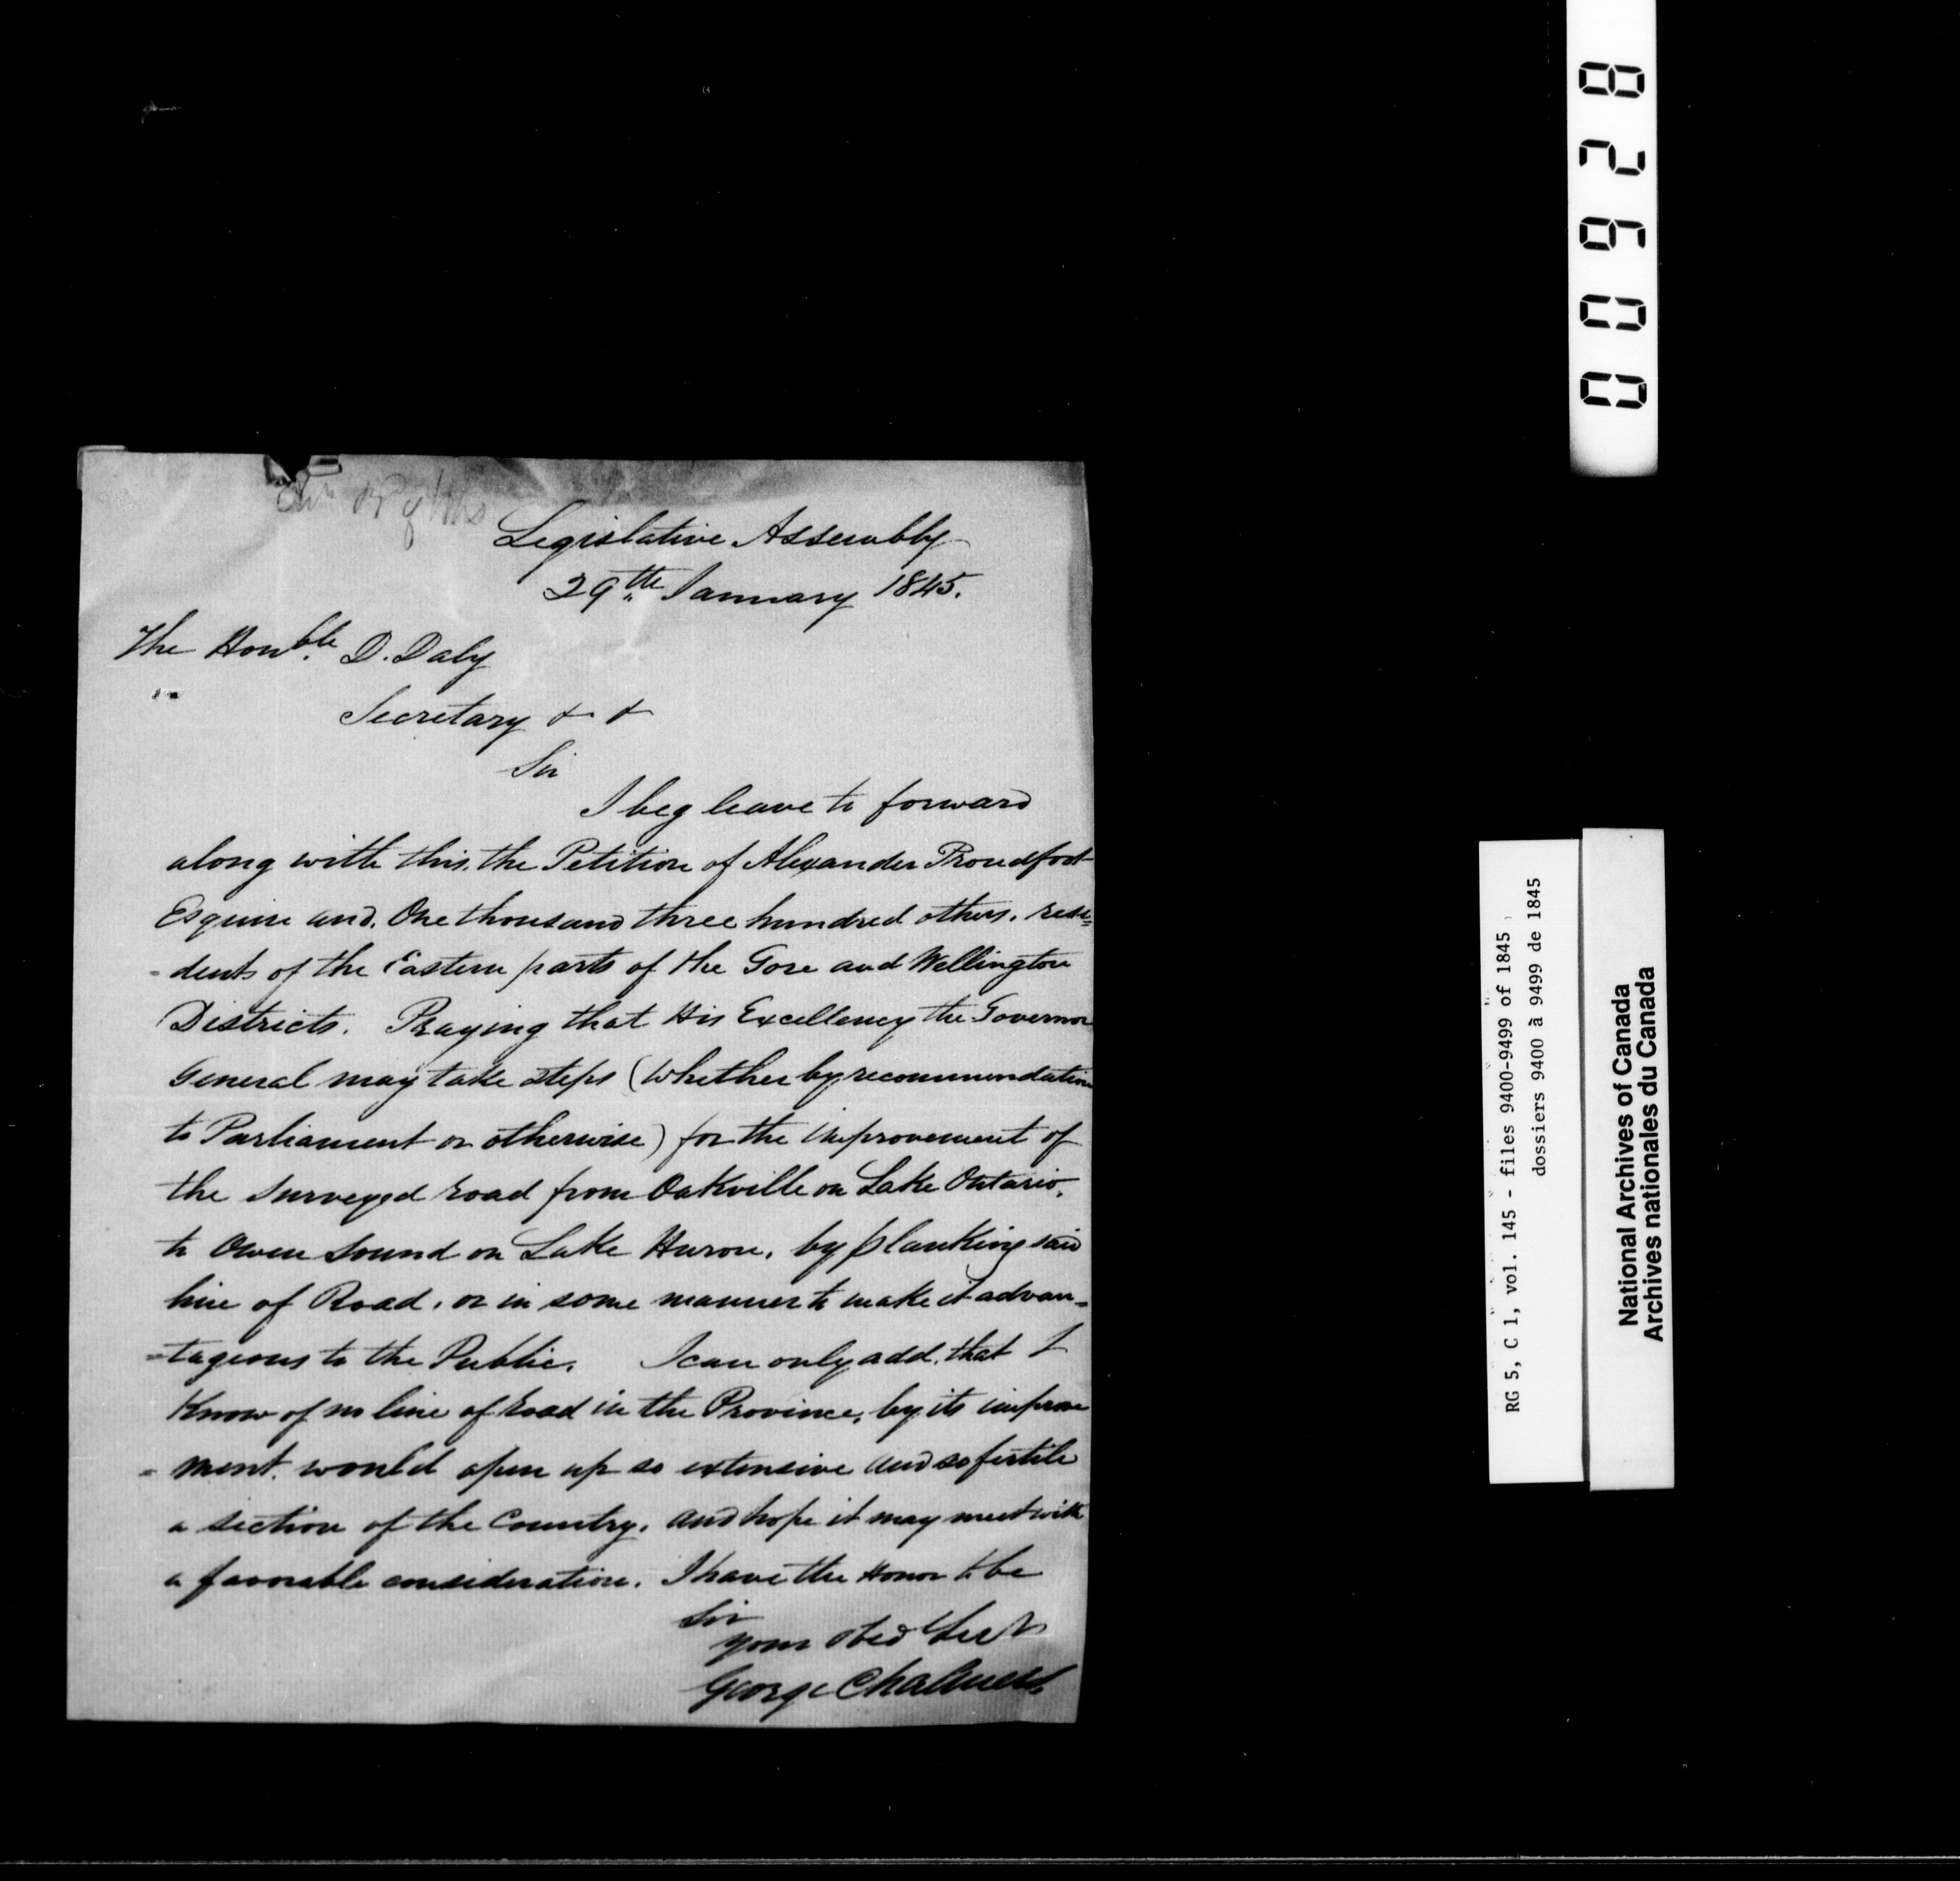 Legislative Assembly
29th January 1845.
The Honble. D. Daly
Secretary & &
Sir
I beg leave to forward
along with this, the Petition of Alexander Proudfoot
Esquire and. One thousand three hundred others. resi=
=dents of the Eastern parts of the Gore and Wellington
Districts. Praying that His Excellency the Governor
General may take steps (Whether by recommendation
to Parliament or otherwise) for the improvement of
the surveyed road from Oakville on Lake Ontario.
to Owen Sound on Lake Huron, by planking said
line of Road, or in some manner to make it advan=
=tageous to the Public. I can only add, that I
Know of no line of road in the Province, by its improve
=ment. would open up so extensive and so fertile
a section of the Country. and hope it may meet with
a favorable consideration. I have the Honor to be
Sir
your obed Servt
George Chalmers
00928
RG 5, C 1, vol. 145 - files 9400-9499 of 1845
dossiers 9400 à 9499 de 1845
National Archives of Canada
Archives nationales du Canada